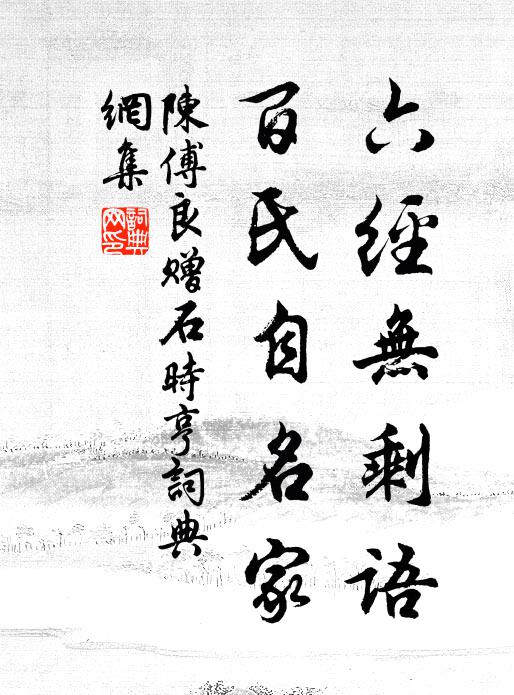 六經無剩語
百氏自名家
陳傅良贈石時亨詞典
網集
詞典網印